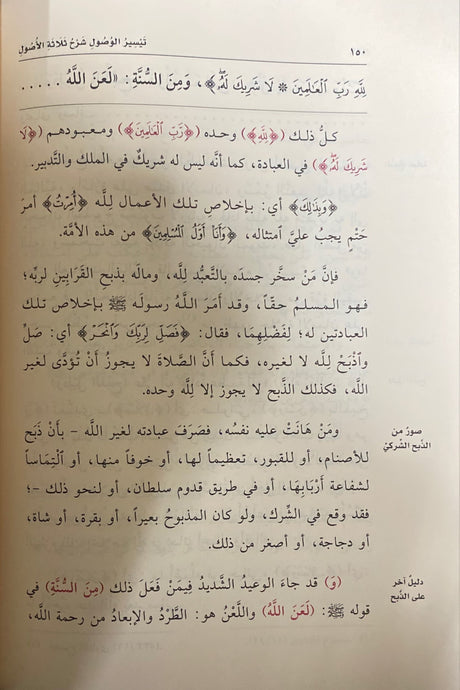 ١٥٠
تَيْسِيرُ الوُصُولِ شَرْحُ ثَلَاثَةِ الأُصُولِ
لِلَّهِ رَبِّ ٱلْعَٰلَمِينَ * لَا شَرِيكَ لَهُۥ﴾، وَمِنَ السُّنَّةِ: «لَعَنَ اللهُ .....
كلُّ ذلك (﴿لِلَّهِ﴾) وحده (﴿رَبِّ ٱلْعَٰلَمِينَ﴾) ومعبودهم (﴿لَا
شَرِيكَ لَهُۥ﴾) في العبادة، كما أنَّه ليس له شريكٌ في الملك والتَّدبير.
﴿وَبِذَٰلِكَ﴾ أي: بـإخلاصِ تلـك الأعمـال لِلَّه ﴿أُمِرْتُ﴾ أمرَ
حَتْمٍ يجبُ عليَّ ٱمتثاله، ﴿وَأَنَا۠ أَوَّلُ ٱلْمُسْلِمِينَ﴾ من هذه الأمَّة.
فإنَّ مَنْ سخَّر جسدَه بالتَّعبُّد لِلَّه، ومالَه بذبحِ القَرَابِينِ لربِّه؛
فهـو المسلـمُ حقّـاً، وقد أَمَرَ اللَّـهُ رسولَه ﷺ بإخلاص تلك
العبادتين له؛ لِفَضْلِهِمَا، فقال: ﴿فَصَلِّ لِرَبِّكَ وَٱنْحَرْ﴾ أي: صَلِّ
وٱذْبَحْ لِلَّه لا لغيره، فكما أنَّ الصَّلاةَ لا يجوزُ أَنْ تُؤدَّى لغير
اللَّه، فكذلك الذَّبح لا يجوز إلا لِلَّه وحده.
ومَنْ هَانَتْ عليه نفسُه، فصَرَفَ عبادته لغير اللَّه - بأَنْ ذَبَحَ
للأصنام، أو للقبور، تعظيماً لها، أو خوفاً منها، أو ٱلْتِمَاساً
لشفاعة أَرْبَابِهَا، أو في طريق قدوم سلطان، أو لنحو ذلك -؛
فقد وقع في الشِّرك، ولو كان المذبوحُ بعيراً، أو بقرة، أو شاة،
أو دجاجة، أو أصغر من ذلك.
صورٌ من
الذَّبح الشِّركيِّ
(وَ) قد جاءَ الوعيدُ الشَّديدُ فِيمَنْ فَعَلَ ذلك (مِنَ السُّنَّةِ) في
قوله ﷺ: (لَعَنَ اللَّهُ) واللَّعْنُ هو: الطَّرْدُ والإبعادُ من رحمة اللَّه،
دليلٌ آخر
على الذَّبح